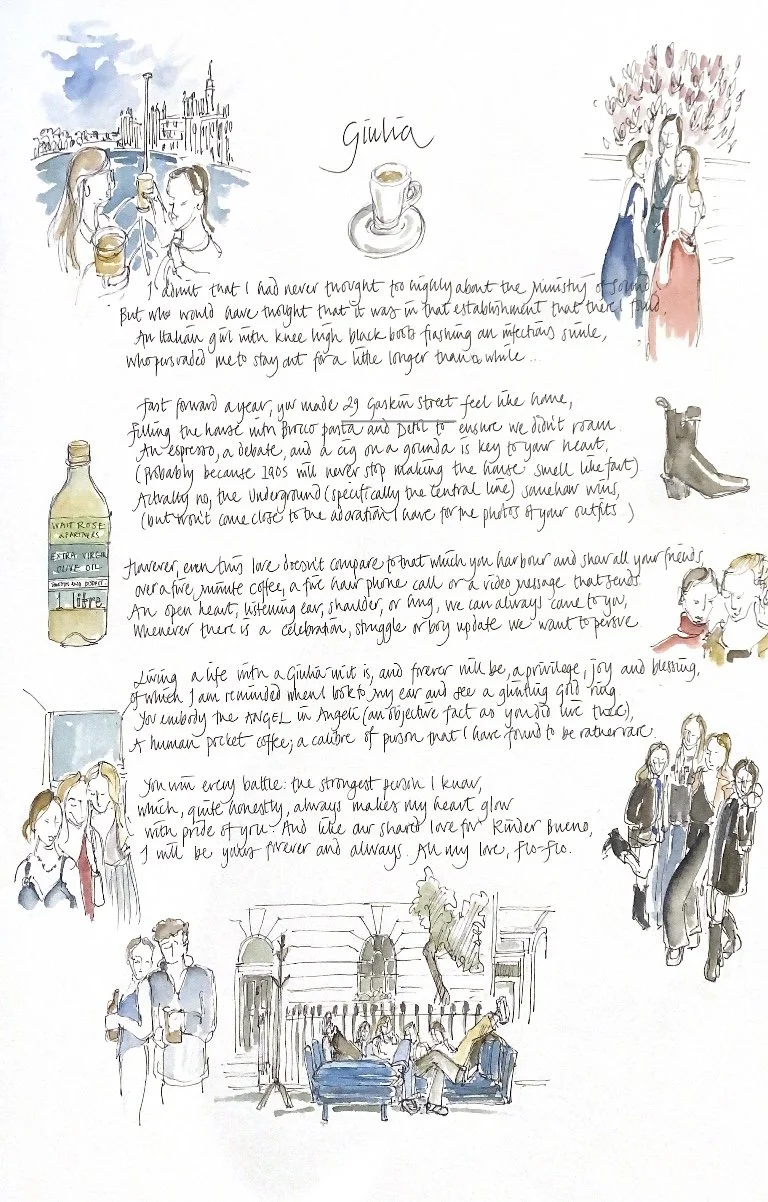 Giulia
I admit that I had never thought too highly about the ministry of sound
But who would have thought that it was in that establishment that there I found,
An Italian girl with knee high black boots flashing an infectious smile,
who persuaded me to stay out for a little longer than a while...
Fast forward a year, you made 29 Gaskin Street feel like home,
filling the house with Brocco pasta and Detol to ensure we didn't roam.
An espresso, a debate, and a cig on a is key to your heart,
(Probably because will never stop making the house smell like fart)
Actually no, the Underground (specifically the central line) somehow wins,
(but won't come close to the adoration I have for the photos of your outfits)
However, even this love doesn't compare to that which you harbour and share all your friends
over a five minute coffee, a five hour phone call or a video message that sends
An open heart, listening ear, shoulder, or hug, we can always come to you,
Whenever there is a celebration, struggle or boy update we want to persue
Living a life with a Giulia in it is, and forever will be, a privilege, joy and blessing,
of which I am reminded when I look to my ear and see a glinting gold ring.
You embody the ANGEL in Angeli (an objective fact as you did live there),
A human pocket coffee; a calibre of person that I have found to be rather rare.
You win every battle: the strongest person I know,
which, quite honestly, always makes my heart glow
with pride of you. And like our shared love for Kinder Bueno,
I will be yours forever and always. All my love, Flo-Flo.
WAITROSE
&PARTNERS
EXTRA VIRGIN
OLIVE OIL
1 litre